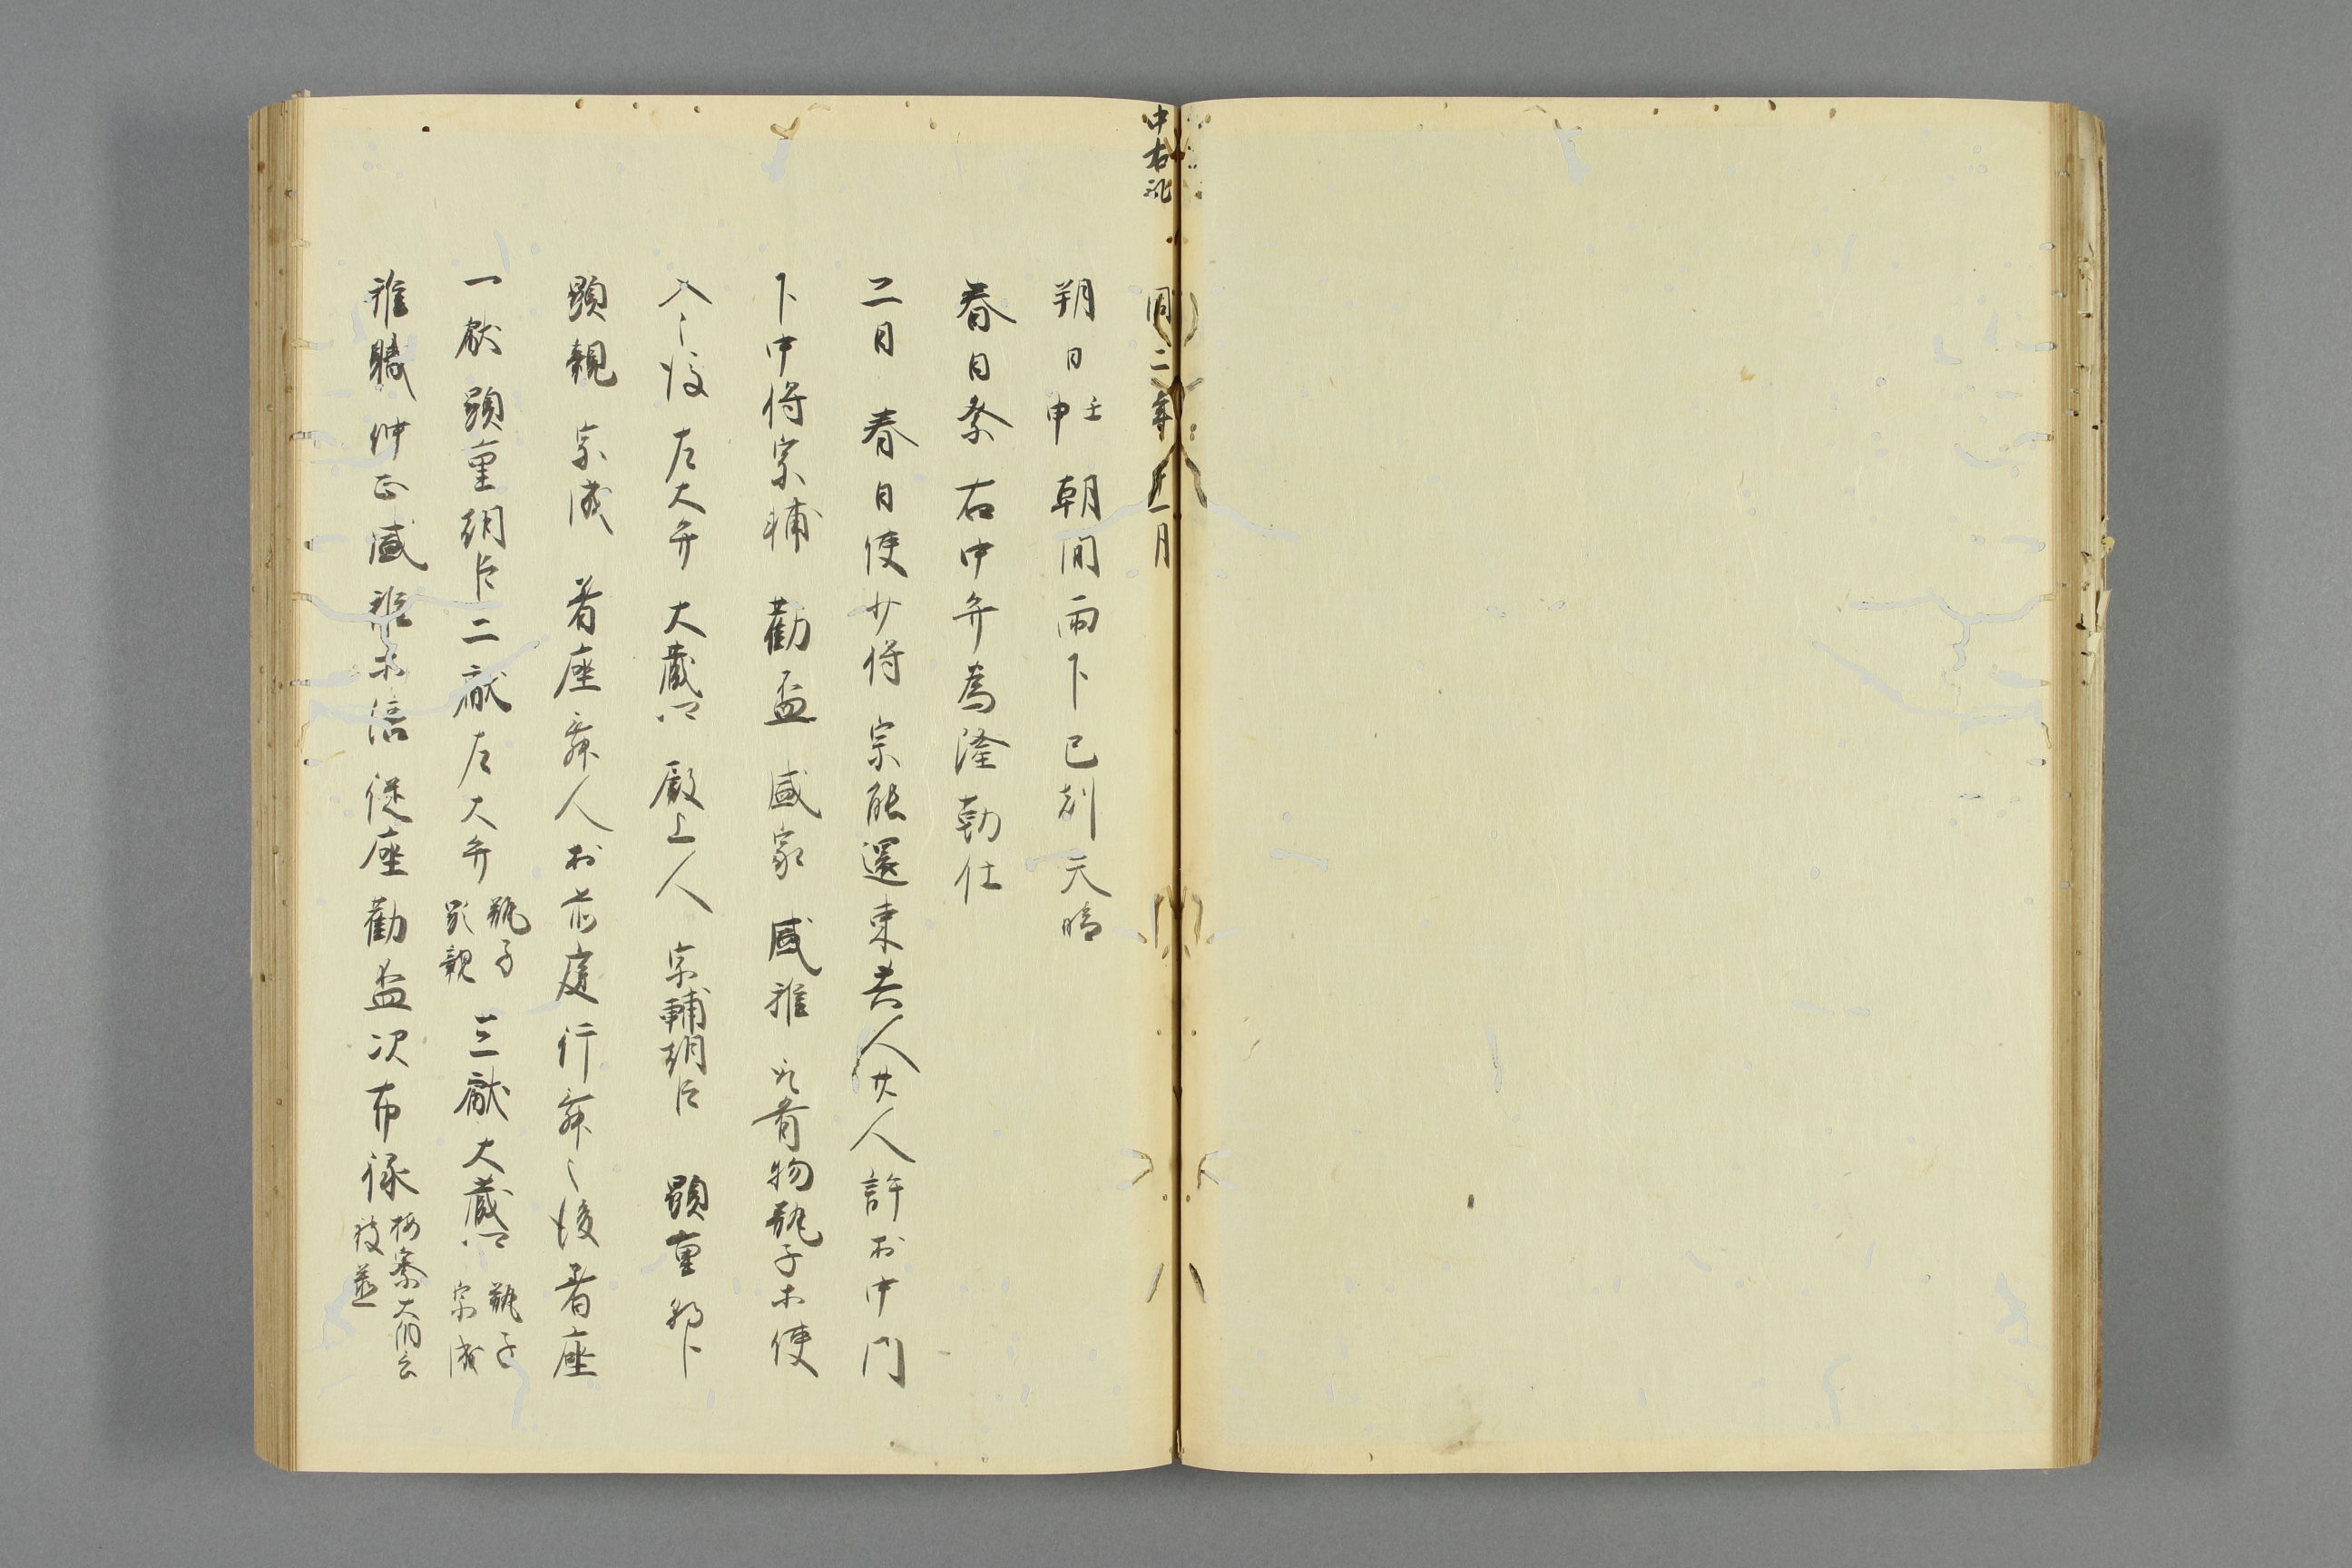 中右記
同二年 正月
朔日壬申 朝間雨下巳刻天晴
春日祭右中弁為隆勤仕
二日 春日使少将宗能還来共人廿人許於中門
下中将宗輔 勧盃 盛家 盛雅 取肴物瓶子未使
入之後左大弁 大蔵卿 殿上人 宗輔朝臣 顕重朝臣
顕親 宗成 着座舞人於前庭行舞之後着座
一献顕重朝臣二献左大弁瓶子顕親三献大蔵卿瓶子宗成
雅職仲正盛雅 未信 従座勧盃次布禄